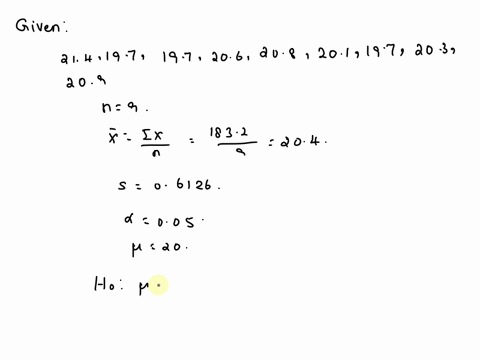 Given:
21.4, 19.7, 19.7, 20.6, 20.8, 20.1, 19.7, 20.3,
20.9
n = 9.
x̄ = Σx/n = 183.2/9 = 20.4.
s = 0.6126.
α = 0.05.
μ = 20.
H₀: μ